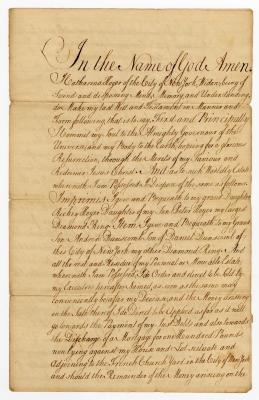 In the Name of God Amen
I Catharina Meyer of the City of New York, Widow, being of
Sound and disposing Mind, Memory and Understanding,
do Make my last Will and Testament in Manner and
Form following, that is to say, First and Principally
I Commit my Soul to the Almighty Governour of the
Universe, and my Body to the Earth, hoping for a glorious
Resurrection, through the Merits of my Saviour and
Redeemer Jesus Christ And as to such Worldly Estate
wherewith I am Possessed I dispose of the same as follows
Imprimis I give and Bequeath to my grand Daughter
Meyer Daughter of my Son Peter Meyer my largest
Diamond Ring Item I give and Bequeath to my Good
Son Andrew of Daniel of
this City of New York my other Diamond Ring And
all the rest and Residue of my Personal or Moveable Estate
wherewith I am Possessed I do Order and direct to be Sold by
my Executors hereafter Named, as soon as the same may
Conveniently be after my Decease, and the Money arising
on the Sale thereof I do Direct to be applied as far as it will
go towards the Payment of my Just Debts and also towards
the Discharge of a Mortgage for one Hundred Pounds
now lying against my House and Lot situate and
Adjoining to the French Church Yard in the City of New York
and should the Remainder of the Money arising on the